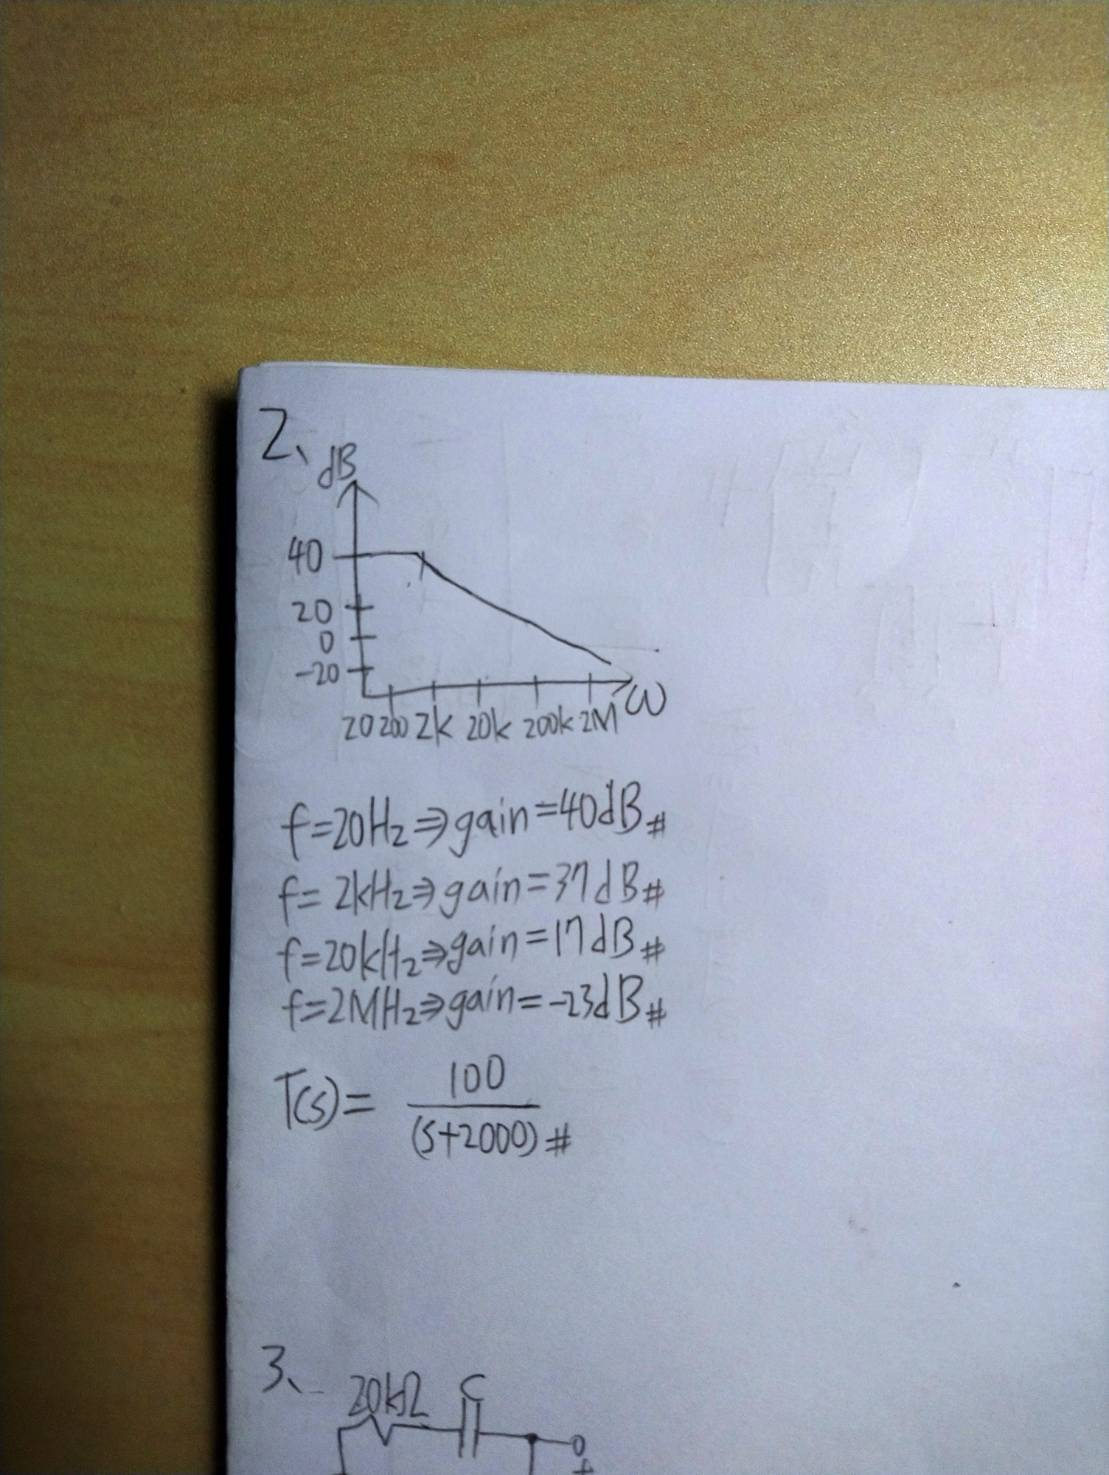 2、
dB
40
20
0
-20
20 200 2k 20k 200k 2M ω
f=20Hz⇒gain=40dB#
f=2kHz⇒gain=37dB#
f=20kHz⇒gain=17dB#
f=2MHz⇒gain=-23dB#
T(s)= 100
(s+2000)#
3、
20kΩ C
+